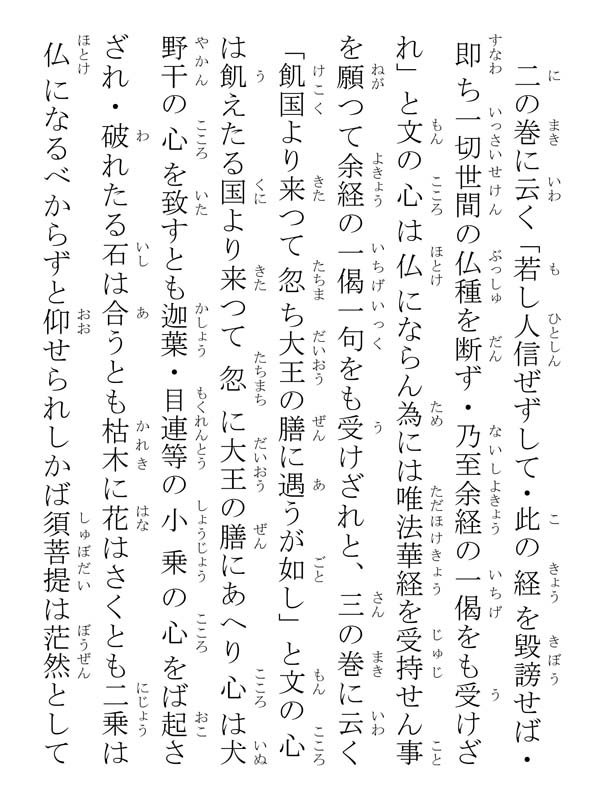 二の巻に云く「若し人信ぜずして・此の経を毀謗せば・
即ち一切世間の仏種を断ず・乃至余経の一偈をも受けざ
れ」と文の心は仏にならん為には唯法華経を受持せん事
を願つて余経の一偈一句をも受けざれと、三の巻に云く
「飢国より来つて忽ち大王の膳に遇うが如し」と文の心
は飢えたる国より来つて忽に大王の膳にあへり心は犬
野干の心を致すとも迦葉・目連等の小乗の心をば起さ
ざれ・破れたる石は合うとも枯木に花はさくとも二乗は
仏になるべからずと仰せられしかば須菩提は茫然として